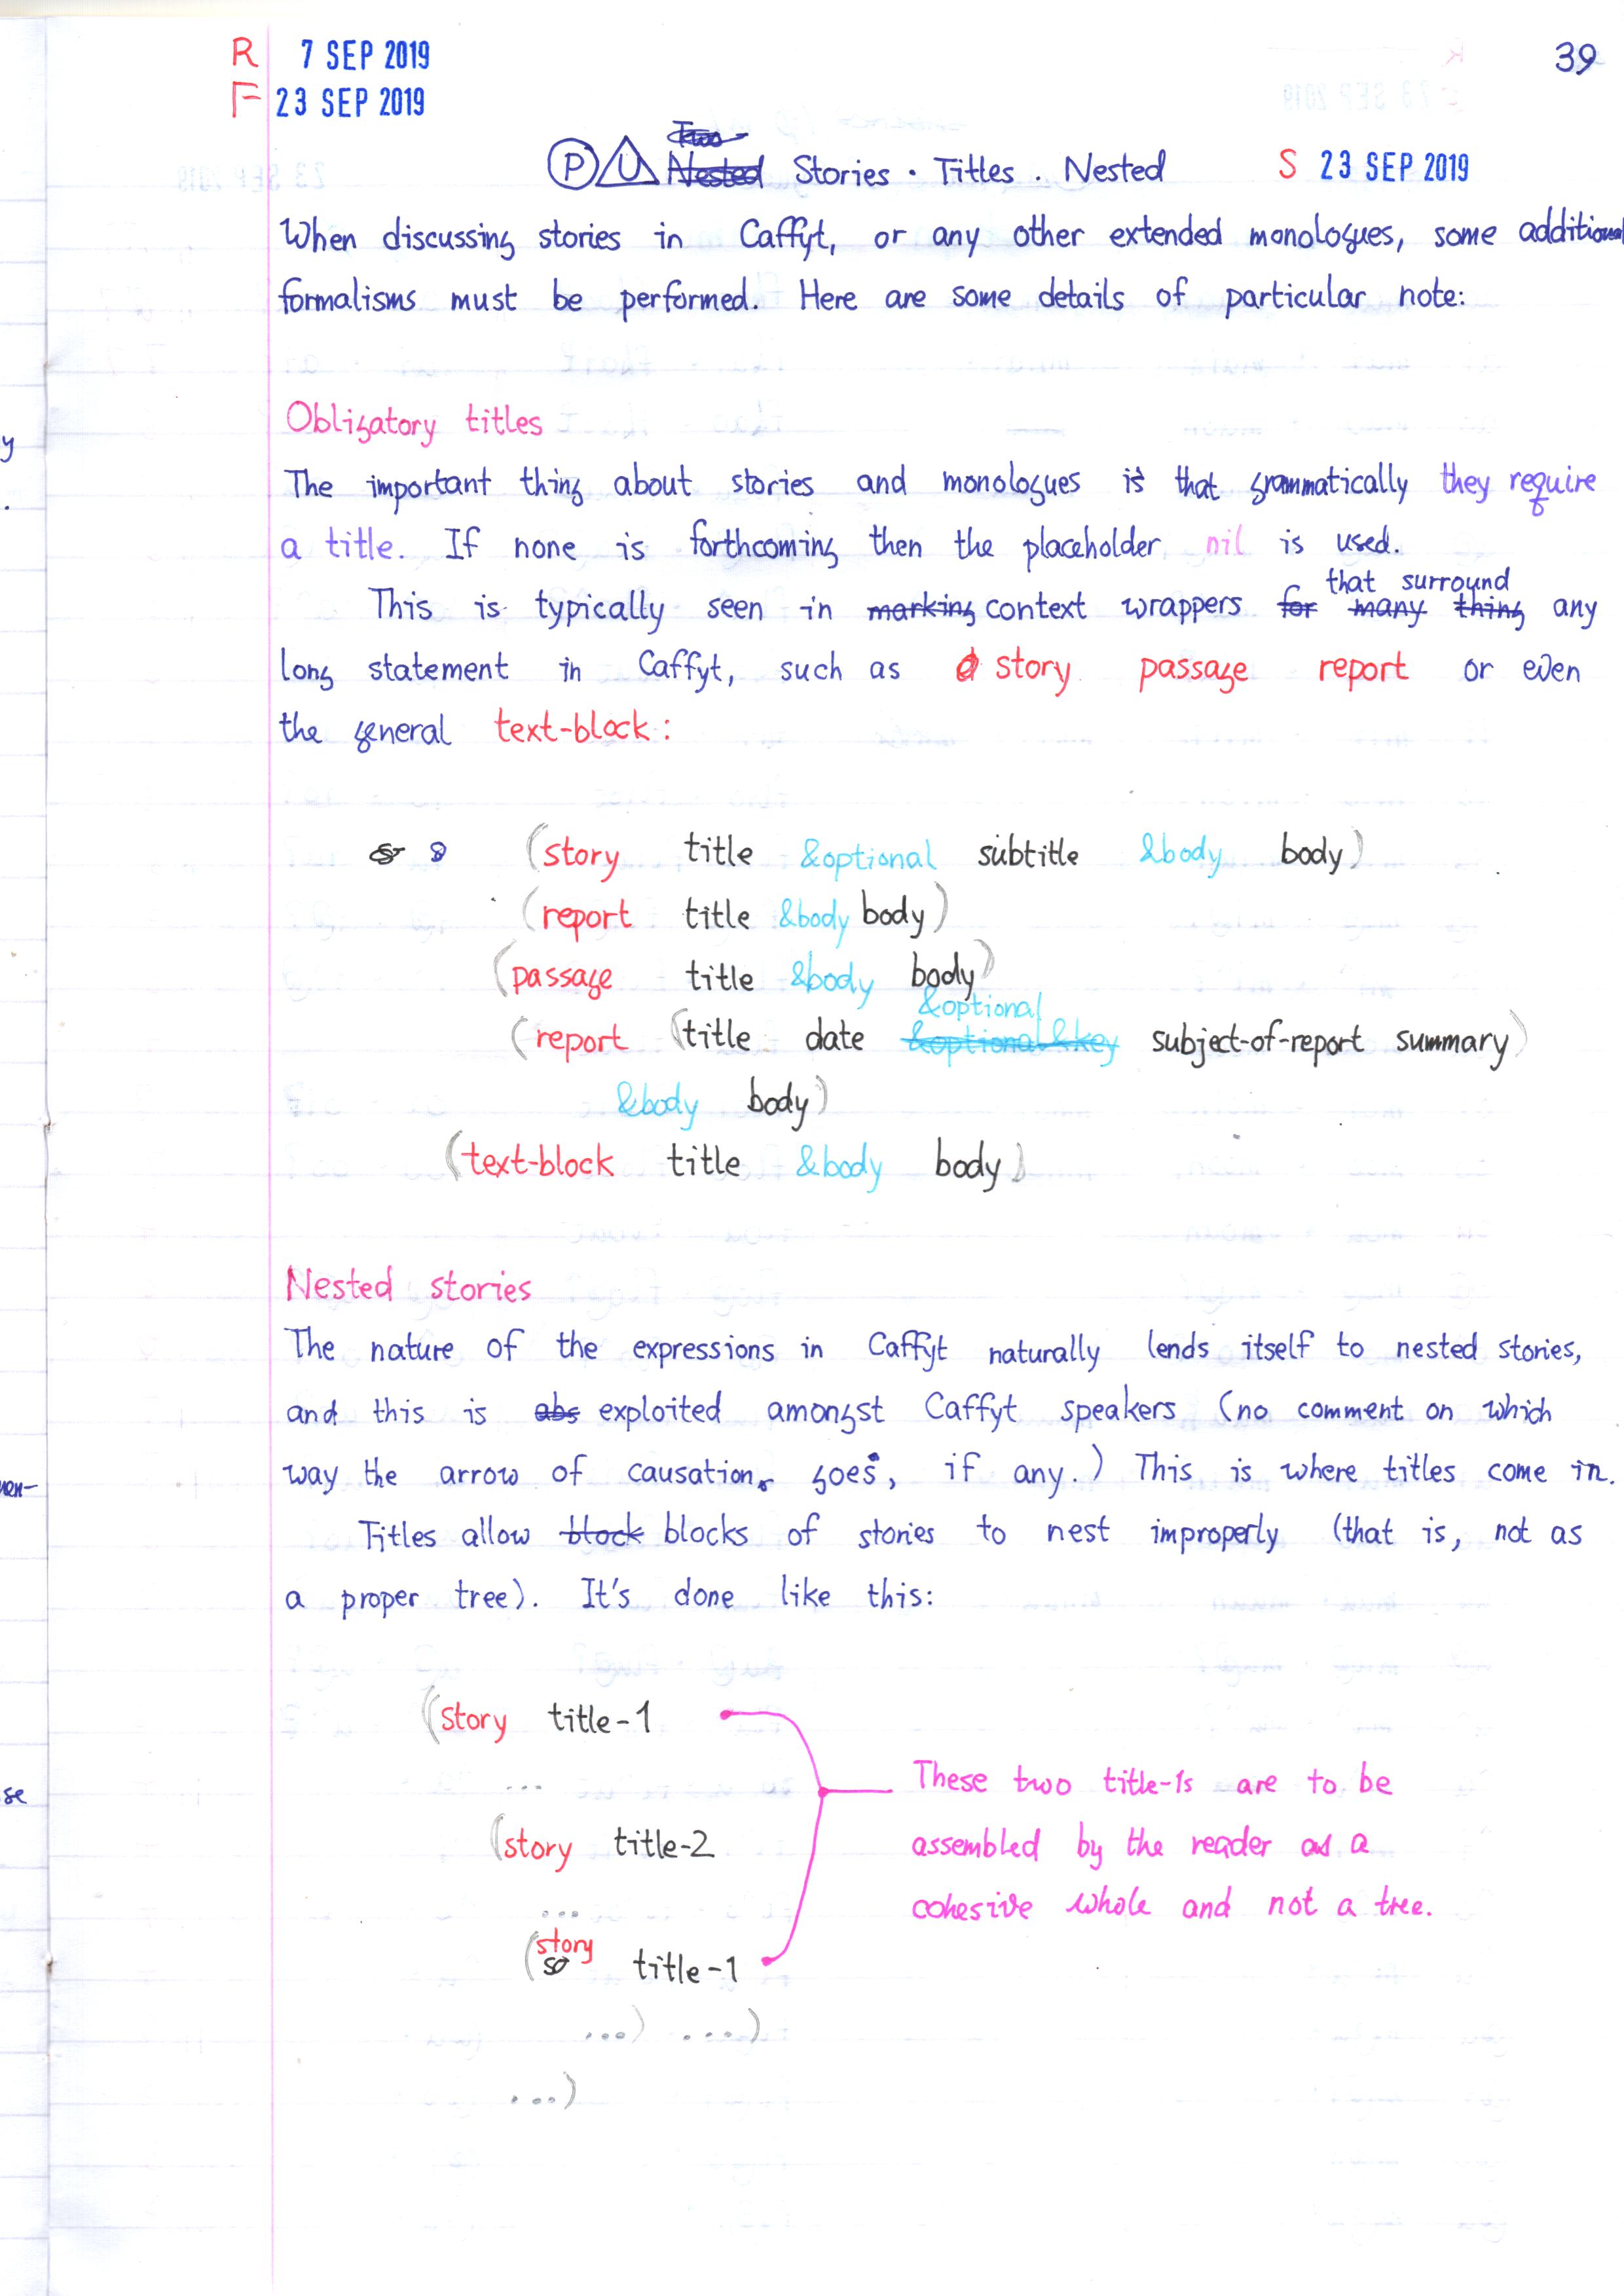 R 7 SEP 2019 39
F 23 SEP 2019
Two
P U Nested Stories · Titles · Nested S 23 SEP 2019
When discussing stories in Caffyt, or any other extended monologues, some additional
formalisms must be performed. Here are some details of particular note:
Obligatory titles
y
The important thing about stories and monologues is that grammatically they require
a title. If none is forthcoming then the placeholder nil is used.
that surround
This is typically seen in marking context wrappers for many thing any
long statement in Caffyt, such as story passage report or even
the general text-block:
(story title &optional subtitle &body body)
(report title &body body)
(passage title &body body)
&optional
(report (title date &optional &key subject-of-report summary)
&body body)
(text-block title &body body)
Nested stories
The nature of the expressions in Caffyt naturally lends itself to nested stories,
and this is abs exploited amongst Caffyt speakers (no comment on which
way the arrow of causation goes, if any.) This is where titles come in.
Titles allow block blocks of stories to nest improperly (that is, not as
a proper tree). It's done like this:
(story title-1
...
(story title-2
...
(story title-1
...) ....)
...)
These two title-1s are to be
assembled by the reader as a
cohesive whole and not a tree.
se